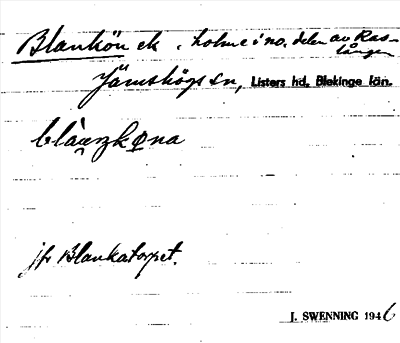 Blankön ek. holme i nö. delen av Ras-
lången
Jämshögs sn, Listers hd, Blekinge län.
blàŋkøna
jfr Blankatorpet.
J. SWENNING 1946